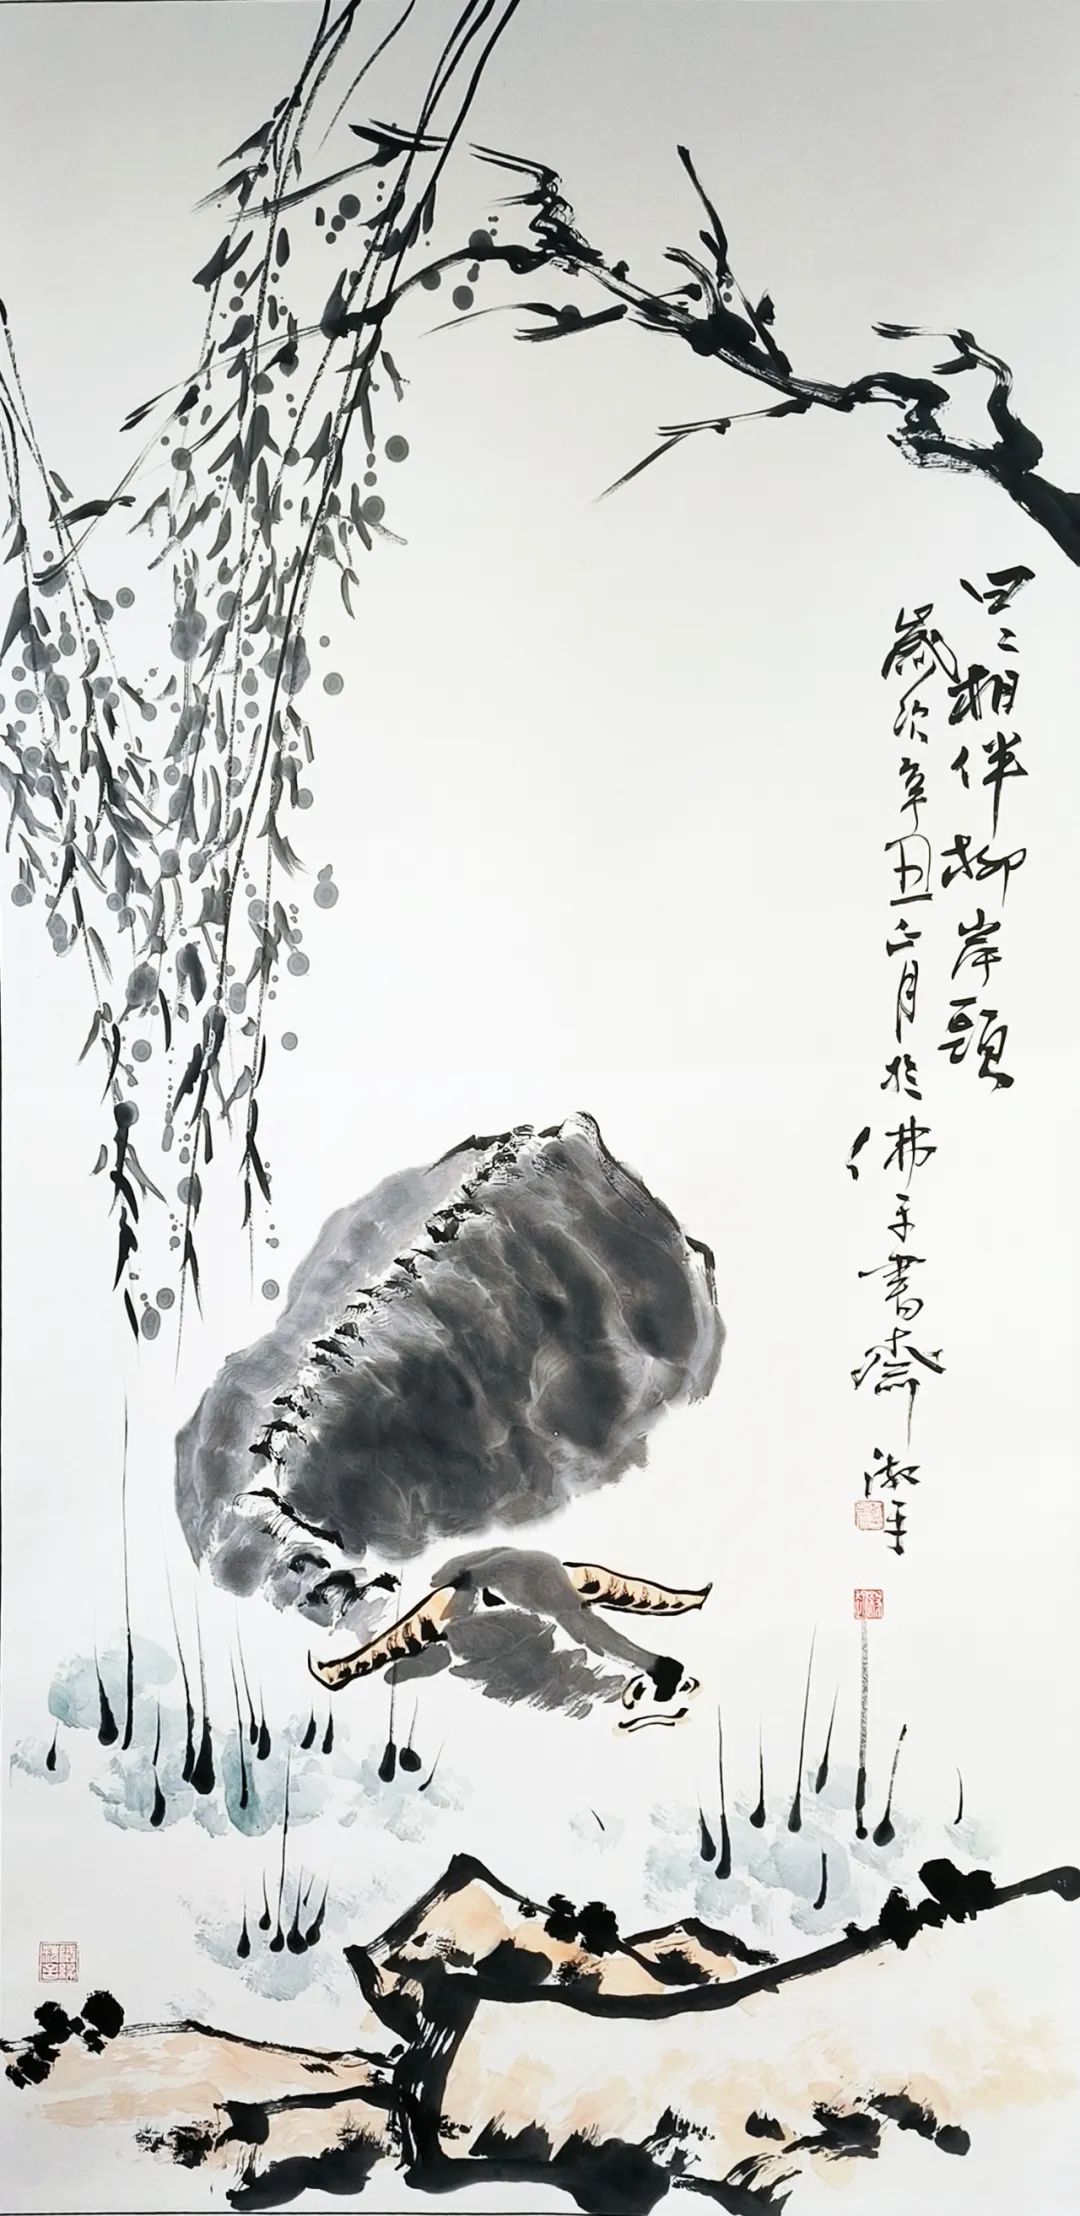 日日相伴柳岸頭
歲次辛丑正月於佛手書齋 淑平